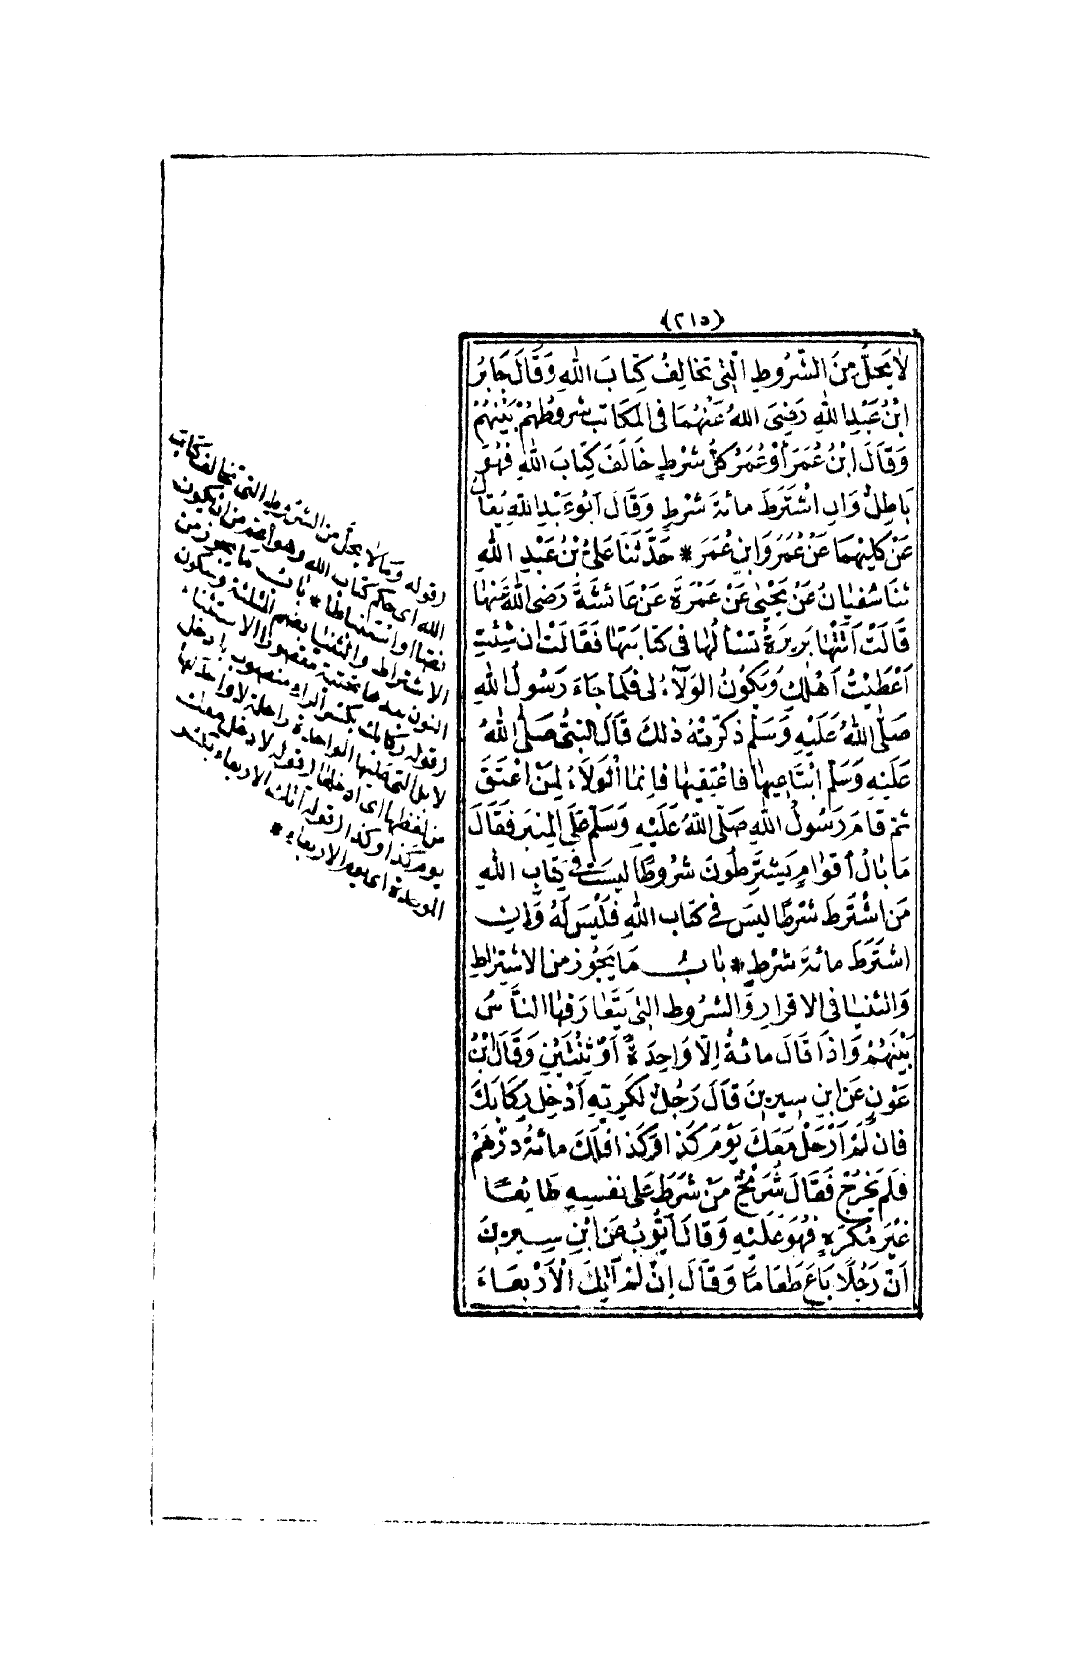 (٢١٥)
لَا يَحِلُّ مِنَ الشُّرُوطِ الَّتِى تُخَالِفُ كِتَابَ اللهِ وَقَالَ جَابِرُ
ابْنُ عَبْدِ اللهِ رَضِىَ اللهُ عَنْهُمَا فِى المُكَاتَبِ شُرُوطُهُمْ بَيْنَهُمْ
وَقَالَ ابْنُ عُمَرَ أَوْ عُمَرُ كُلُّ شَرْطٍ خَالَفَ كِتَابَ اللهِ فَهُوَ
بَاطِلٌ وَاِنِ اشْتَرَطَ مِائَةَ شَرْطٍ وَقَالَ اَبُو عَبْدِ اللهِ يُقَالُ
عَنْ كِلَيْهِمَا عَنْ عُمَرَ وَابْنِ عُمَرَ * حَدَّثَنَا عَلِىُّ بْنُ عَبْدِ اللهِ
ثَنَا سُفْيَانُ عَنْ يَحْيٰى عَنْ عَمْرَةَ عَنْ عَائِشَةَ رَضِىَ اللهُ عَنْهَا
قَالَتْ اَتَتْهَا بَرِيرَةُ تَسْأَلُهَا فِى كِتَابَتِهَا فَقَالَتْ اِنْ شِئْتِ
اَعْطَيْتُ اَهْلَكِ وَيَكُونُ الوَلَاءُ لِى فَلَمَّا جَاءَ رَسُولُ اللهِ
صَلَّى اللهُ عَلَيْهِ وَسَلَّمَ ذَكَّرْتُهُ ذٰلِكَ قَالَ النَّبِىُّ صَلَّى اللهُ
عَلَيْهِ وَسَلَّمَ ابْتَاعِيهَا فَاعْتِقِيهَا فَاِنَّمَا الْوَلَاءُ لِمَنْ اَعْتَقَ
ثُمَّ قَامَ رَسُولُ اللهِ صَلَّى اللهُ عَلَيْهِ وَسَلَّمَ عَلَى المِنْبَرِ فَقَالَ
مَا بَالُ أَقْوَامٍ يَشْتَرِطُونَ شُرُوطًا لَيْسَتْ فِى كِتَابِ اللهِ
مَنِ اشْتَرَطَ شَرْطًا لَيْسَ فِى كِتَابِ اللهِ فَلَيْسَ لَهُ وَاِنِ
اشْتَرَطَ مِائَةَ شَرْطٍ * بَابُ مَا يَجُوزُ مِنَ الاشْتِرَاطِ
وَالثُّنْيَا فِى الاقْرَارِ وَالشُّرُوطِ الَّتِى يَتَعَارَفُهَا النَّاسُ
بَيْنَهُمْ وَاِذَا قَالَ مِائَةٌ اِلَّا وَاحِدَةً أَوْ ثِنْتَيْنِ وَقَالَ ابْنُ
عَوْنٍ عَنِ ابْنِ سِيرِينَ قَالَ رَجُلٌ لِكَرِيِّهِ اَدْخِلْ رِكَابَكَ
فَاِنْ لَمْ اَرْحَلْ مَعَكَ يَوْمَ كَذَا وَكَذَا فَلَكَ مِائَةُ دِرْهَمٍ
فَلَمْ يَخْرُجْ فَقَالَ شُرَيْحٌ مَنْ شَرَطَ عَلَى نَفْسِهِ طَائِعًا
غَيْرَ مُكْرَهٍ فَهُوَ عَلَيْهِ وَقَالَ اَيُّوبُ عَنِ ابْنِ سِيرِينَ
اَنَّ رَجُلًا بَاعَ طَعَامًا وَقَالَ اِنْ لَمْ آتِكَ الْاَرْبِعَاءَ
(قوله وما لا يحل من الشروط التى تخالف كتاب
الله اى حكم كتاب الله وهو أعم من ان يكون
نصا او استنباطا * باب ما يجوز من
الاشتراط والثنيا بضم المثلثة وسكون
النون بعدها تحتية مقصورا الاستثناء
(قوله ركابك بكسر الراء منصوب بادخل
لابل التى عليها الواحدة راحلة لا واحد لها
من لفظها اى ادخلها (قوله لا رحل معك
يوم كذا وكذا (قوله آتك الاربعاء بكسر
الموحدة اى يوم الاربعاء *